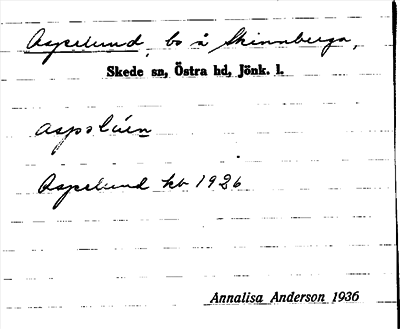 Aspelund, bo å Skinnberga,
Skede sn, Östra hd, Jönk. l.
aspəlúen
Aspelund kb 1926
Annalisa Anderson 1936